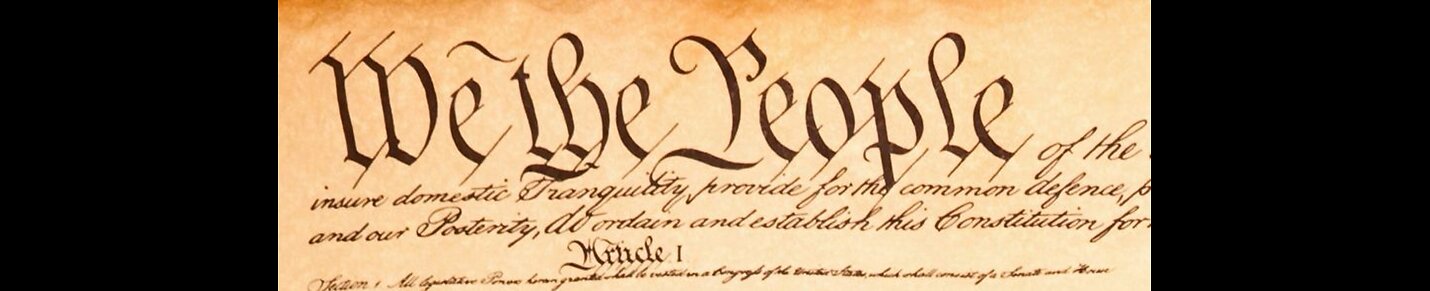 We the People of the
insure domestic Tranquility, provide for the common defence, p
and our Posterity, do ordain and establish this Constitution for
Article I
Section 1 All legislative Powers herein granted shall be vested in a Congress of the United States, which shall consist of a Senate and House